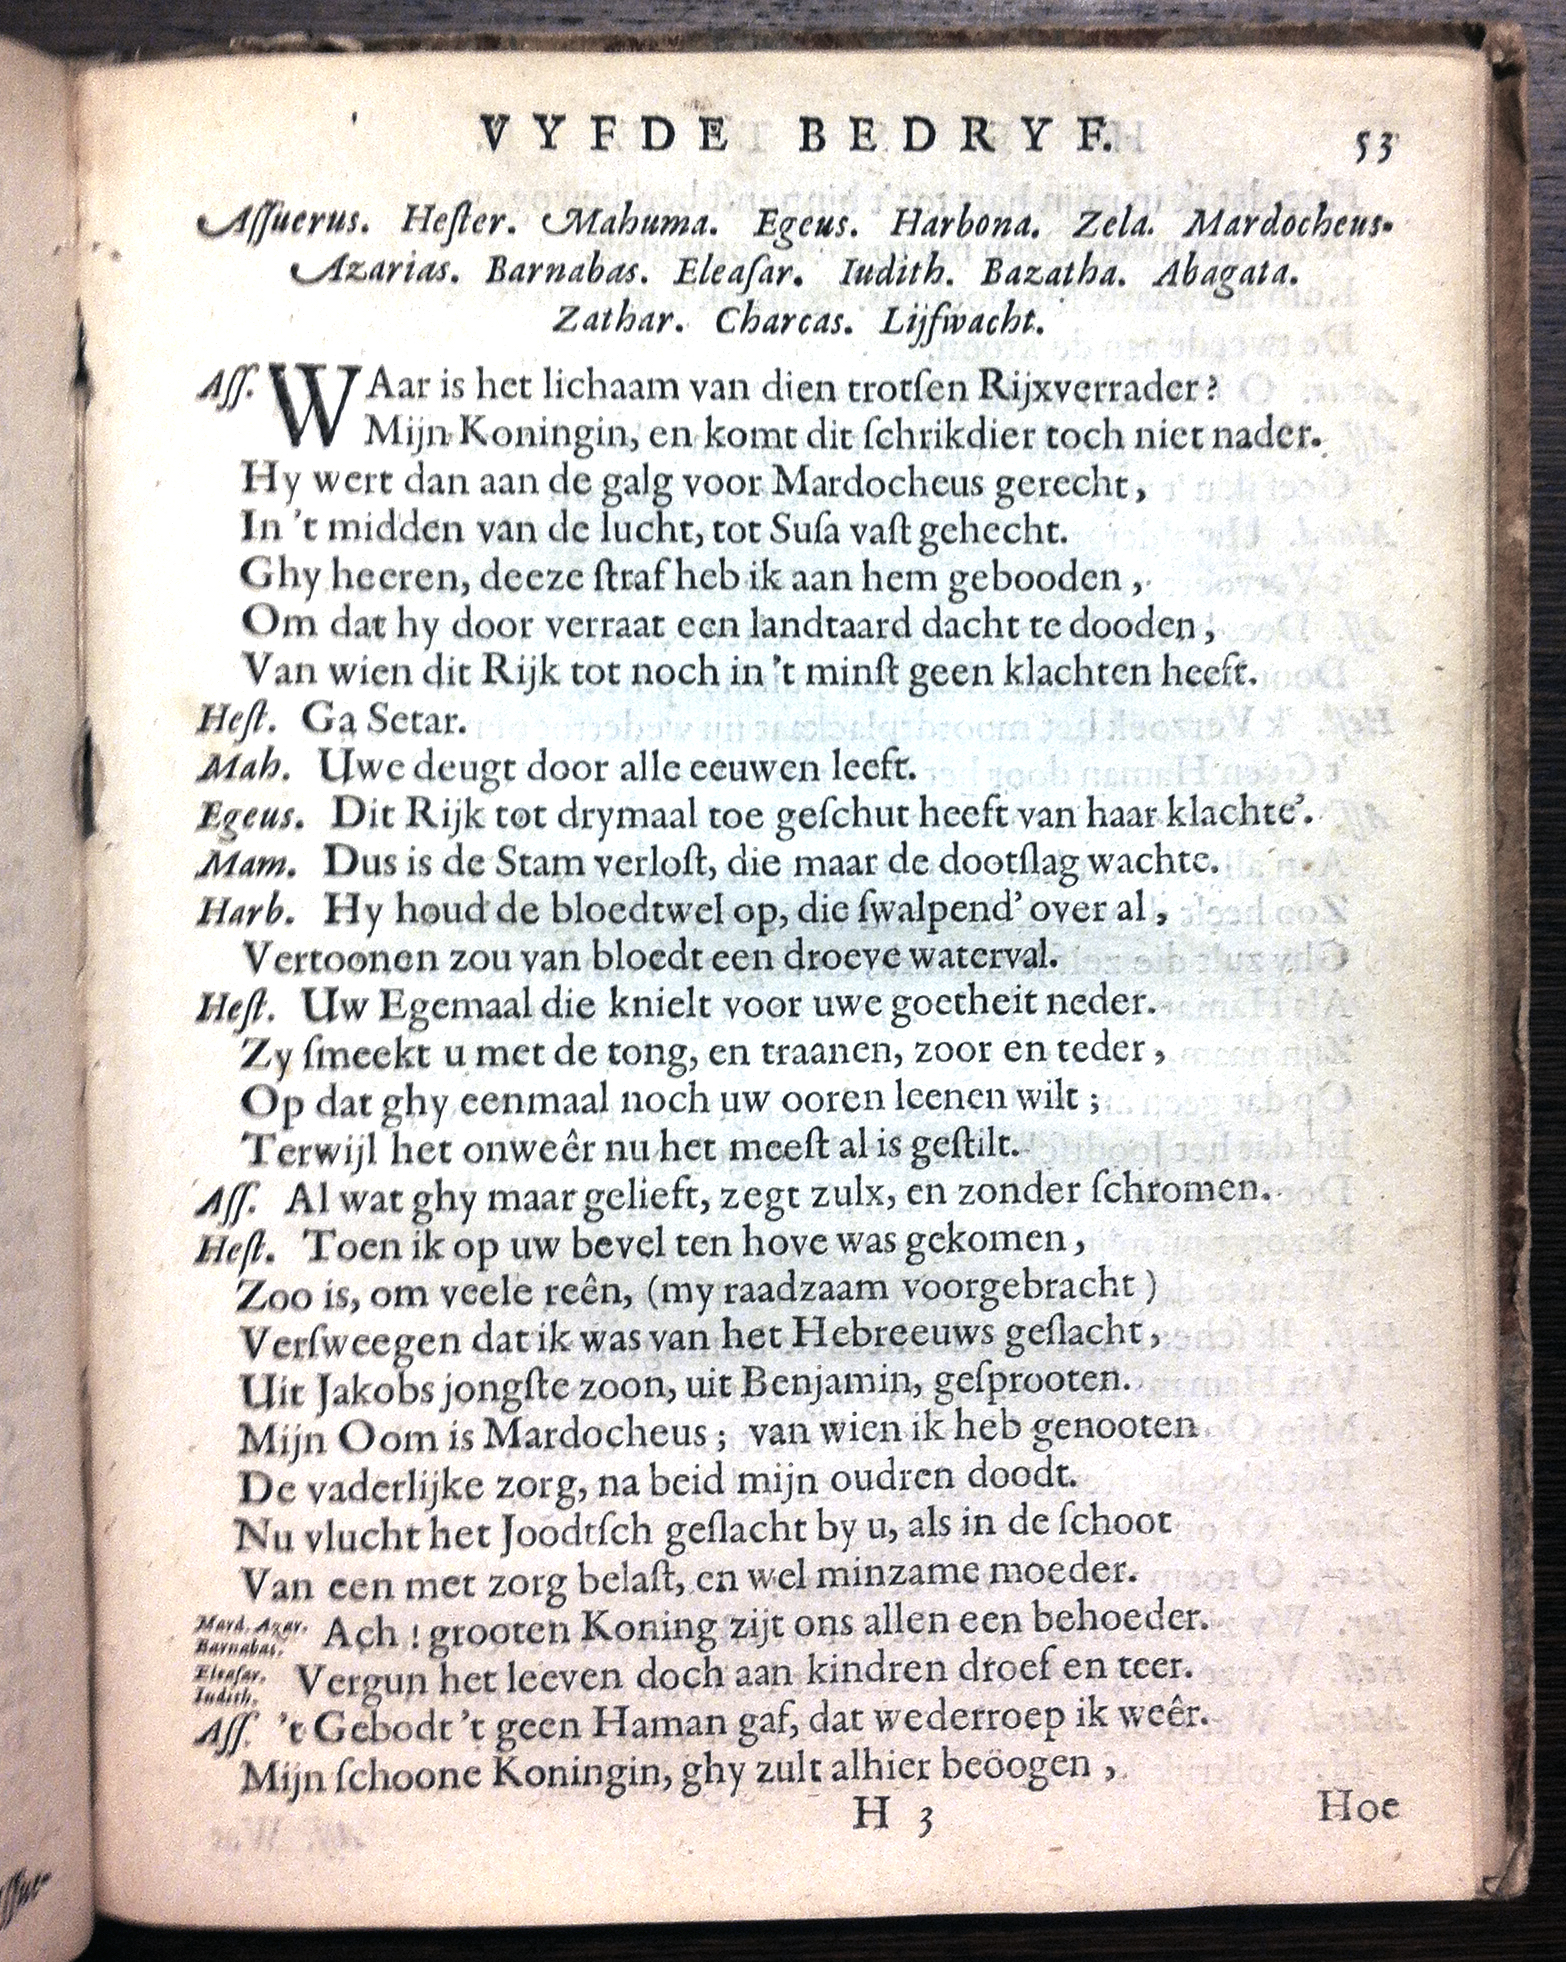 VYFDE BEDRYF. 53
Aſſuerus. Heſter. Mahuma. Egeus. Harbona. Zela. Mardocheus.
Azarias. Barnabas. Eleaſar. Iudith. Bazatha. Abagata.
Zathar. Charcas. Lijfwacht.
Aſſ. WAar is het lichaam van dien trotſen Rijxverrader?
Mijn Koningin, en komt dit ſchrikdier toch niet nader.
Hy wert dan aan de galg voor Mardocheus gerecht,
In 't midden van de lucht, tot Suſa vaſt gehecht.
Ghy heeren, deeze ſtraf heb ik aan hem gebooden,
Om dat hy door verraat een landtaard dacht te dooden,
Van wien dit Rijk tot noch in 't minſt geen klachten heeft.
Heſt. Ga Setar.
Mah. Uwe deugt door alle eeuwen leeft.
Egeus. Dit Rijk tot drymaal toe geſchut heeft van haar klachte'.
Mam. Dus is de Stam verloſt, die maar de dootſlag wachte.
Harb. Hy houd de bloedtwel op, die ſwalpend' over al,
Vertoonen zou van bloedt een droeve waterval.
Heſt. Uw Egemaal die knielt voor uwe goetheit neder.
Zy ſmeekt u met de tong, en traanen, zoor en teder,
Op dat ghy eenmaal noch uw ooren leenen wilt;
Terwijl het onweêr nu het meeſt al is geſtilt.
Aſſ. Al wat ghy maar gelieft, zegt zulx, en zonder ſchromen.
Heſt. Toen ik op uw bevel ten hove was gekomen,
Zoo is, om veele reên, (my raadzaam voorgebracht)
Verſweegen dat ik was van het Hebreeuws geſlacht,
Uit Jakobs jongſte zoon, uit Benjamin, geſprooten.
Mijn Oom is Mardocheus; van wien ik heb genooten
De vaderlijke zorg, na beid mijn oudren doodt.
Nu vlucht het Joodtſch geſlacht by u, als in de ſchoot
Van een met zorg belaſt, en wel minzame moeder.
Mard. Azar. Barnabas. Ach! grooten Koning zijt ons allen een behoeder.
Eleaſar. Iudith. Vergun het leeven doch aan kindren droef en teer.
Aſſ. 't Gebodt 't geen Haman gaf, dat wederroep ik weêr.
Mijn ſchoone Koningin, ghy zult alhier beöogen,
H 3 Hoe